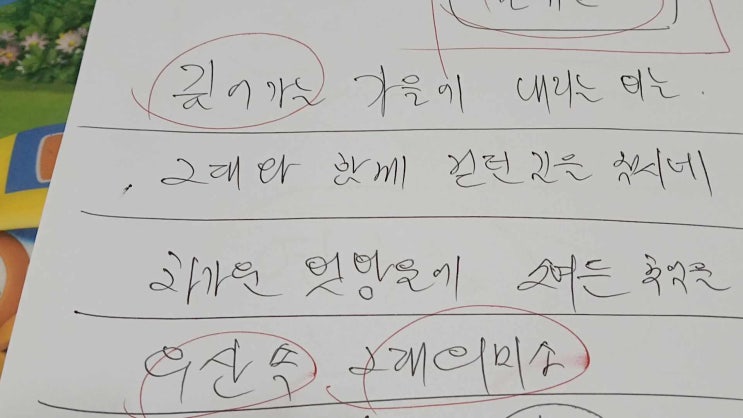 깊어가는 가을에 내리는 비는.
그대와 함께 걷던 길을 적시네
차가운 빗방울에 스며든 추억은
우산 속 그대의 미소